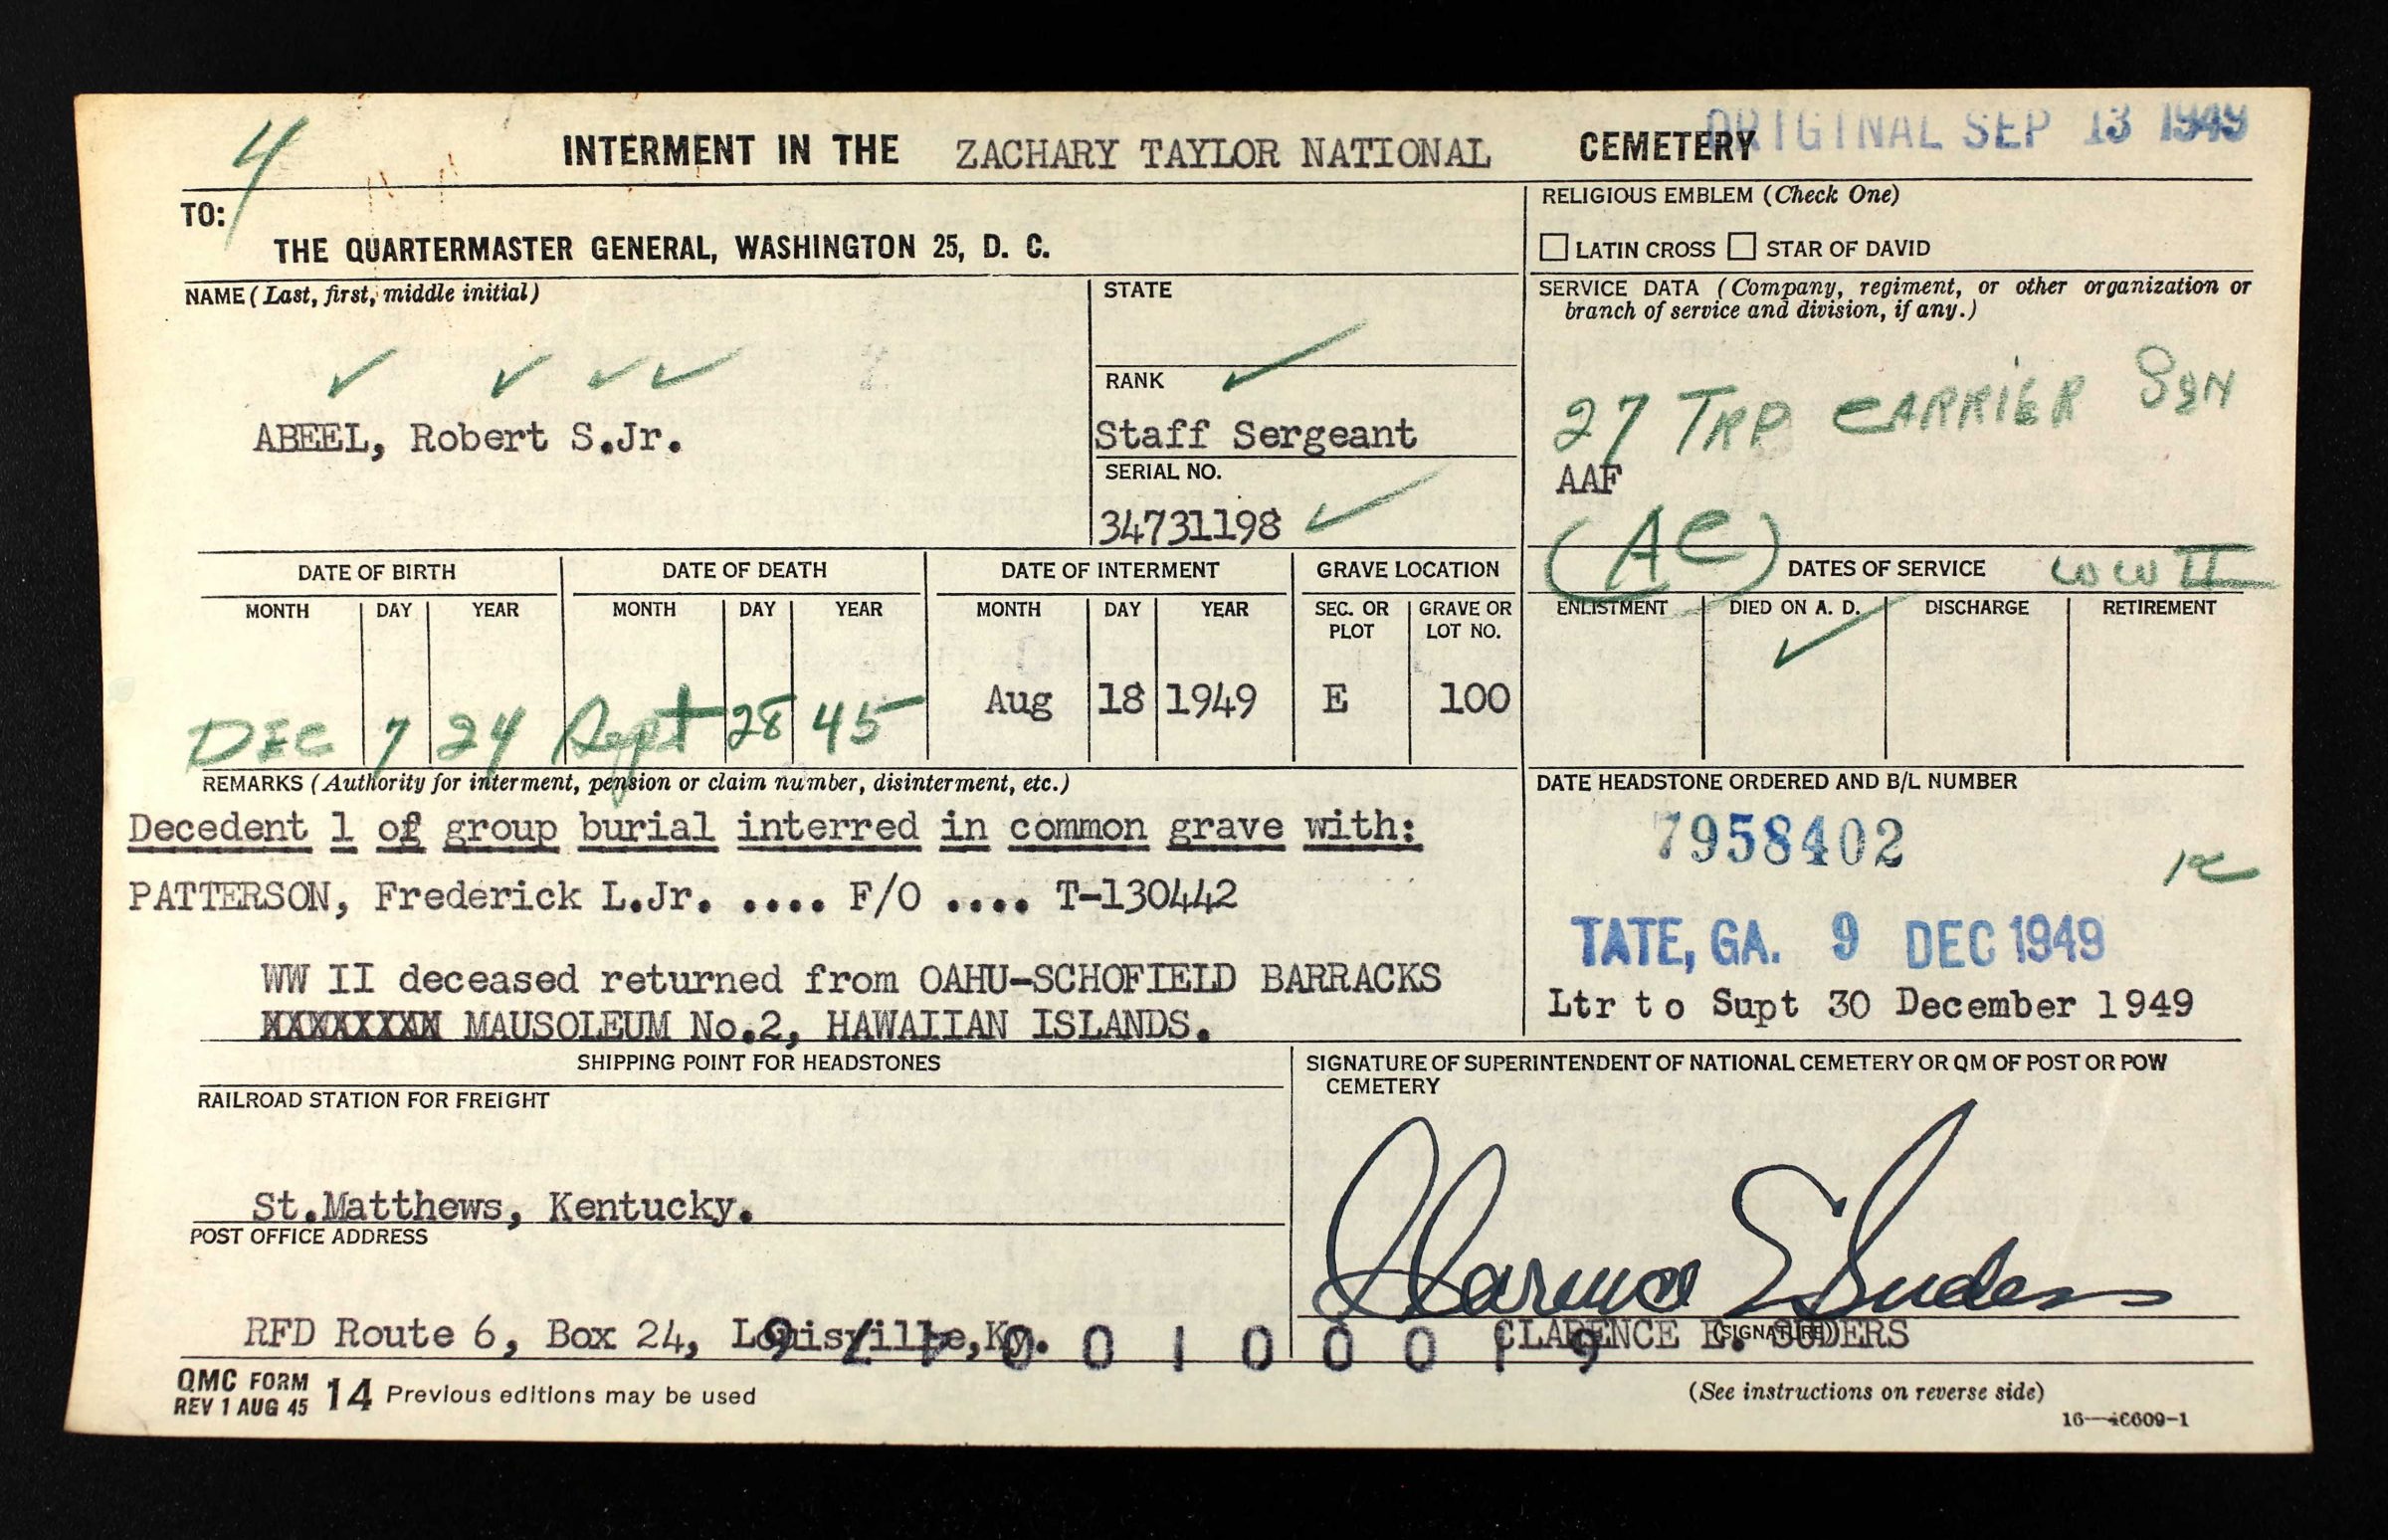 4
INTERMENT IN THE ZACHARY TAYLOR NATIONAL CEMETERY
ORIGINAL SEP 13 1949
TO:
THE QUARTERMASTER GENERAL, WASHINGTON 25, D. C.
RELIGIOUS EMBLEM (Check One)
LATIN CROSS STAR OF DAVID
NAME (Last, first, middle initial)
ABEEL, Robert S.Jr.
STATE
RANK
Staff Sergeant
SERIAL NO.
34731198
SERVICE DATA (Company, regiment, or other organization or
branch of service and division, if any.)
27 TRP CARRIER SQN
AAF
(AC)
DATE OF BIRTH DATE OF DEATH DATE OF INTERMENT GRAVE LOCATION
MONTH DAY YEAR MONTH DAY YEAR MONTH DAY YEAR SEC. OR PLOT GRAVE OR LOT NO.
DEC 7 24 Sept 28 45 Aug 18 1949 E 100
DATES OF SERVICE WW II
ENLISTMENT DIED ON A. D. DISCHARGE RETIREMENT
REMARKS (Authority for interment, pension or claim number, disinterment, etc.)
Decedent 1 of group burial interred in common grave with:
PATTERSON, Frederick L.Jr. .... F/O .... T-130442
WW II deceased returned from OAHU-SCHOFIELD BARRACKS
MAUSOLEUM No.2, HAWAIIAN ISLANDS.
DATE HEADSTONE ORDERED AND B/L NUMBER
7958402
TATE, GA. 9 DEC 1949
Ltr to Supt 30 December 1949
SHIPPING POINT FOR HEADSTONES
RAILROAD STATION FOR FREIGHT
St.Matthews, Kentucky.
POST OFFICE ADDRESS
RFD Route 6, Box 24, Louisville,Ky.
SIGNATURE OF SUPERINTENDENT OF NATIONAL CEMETERY OR QM OF POST OR POW
CEMETERY
Clarence E Suders
(SIGNATURE)
CLARENCE E. SUDERS
QMC FORM 14 Previous editions may be used
REV 1 AUG 45
(See instructions on reverse side)
16—46609-1